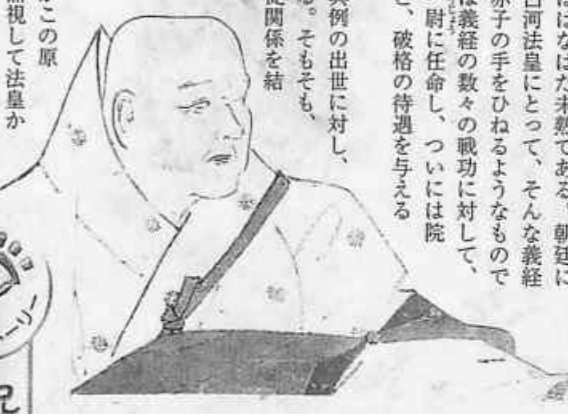 はなはだ未熟である。朝廷に
白河法皇にとって、そんな義経
赤子の手をひねるようなもので
は義経の数々の戦功に対して、
尉に任命し、ついには院
じょう
と、破格の待遇を与える
異例の出世に対し、
る。そもそも、
従関係を結
この原
無視して法皇か